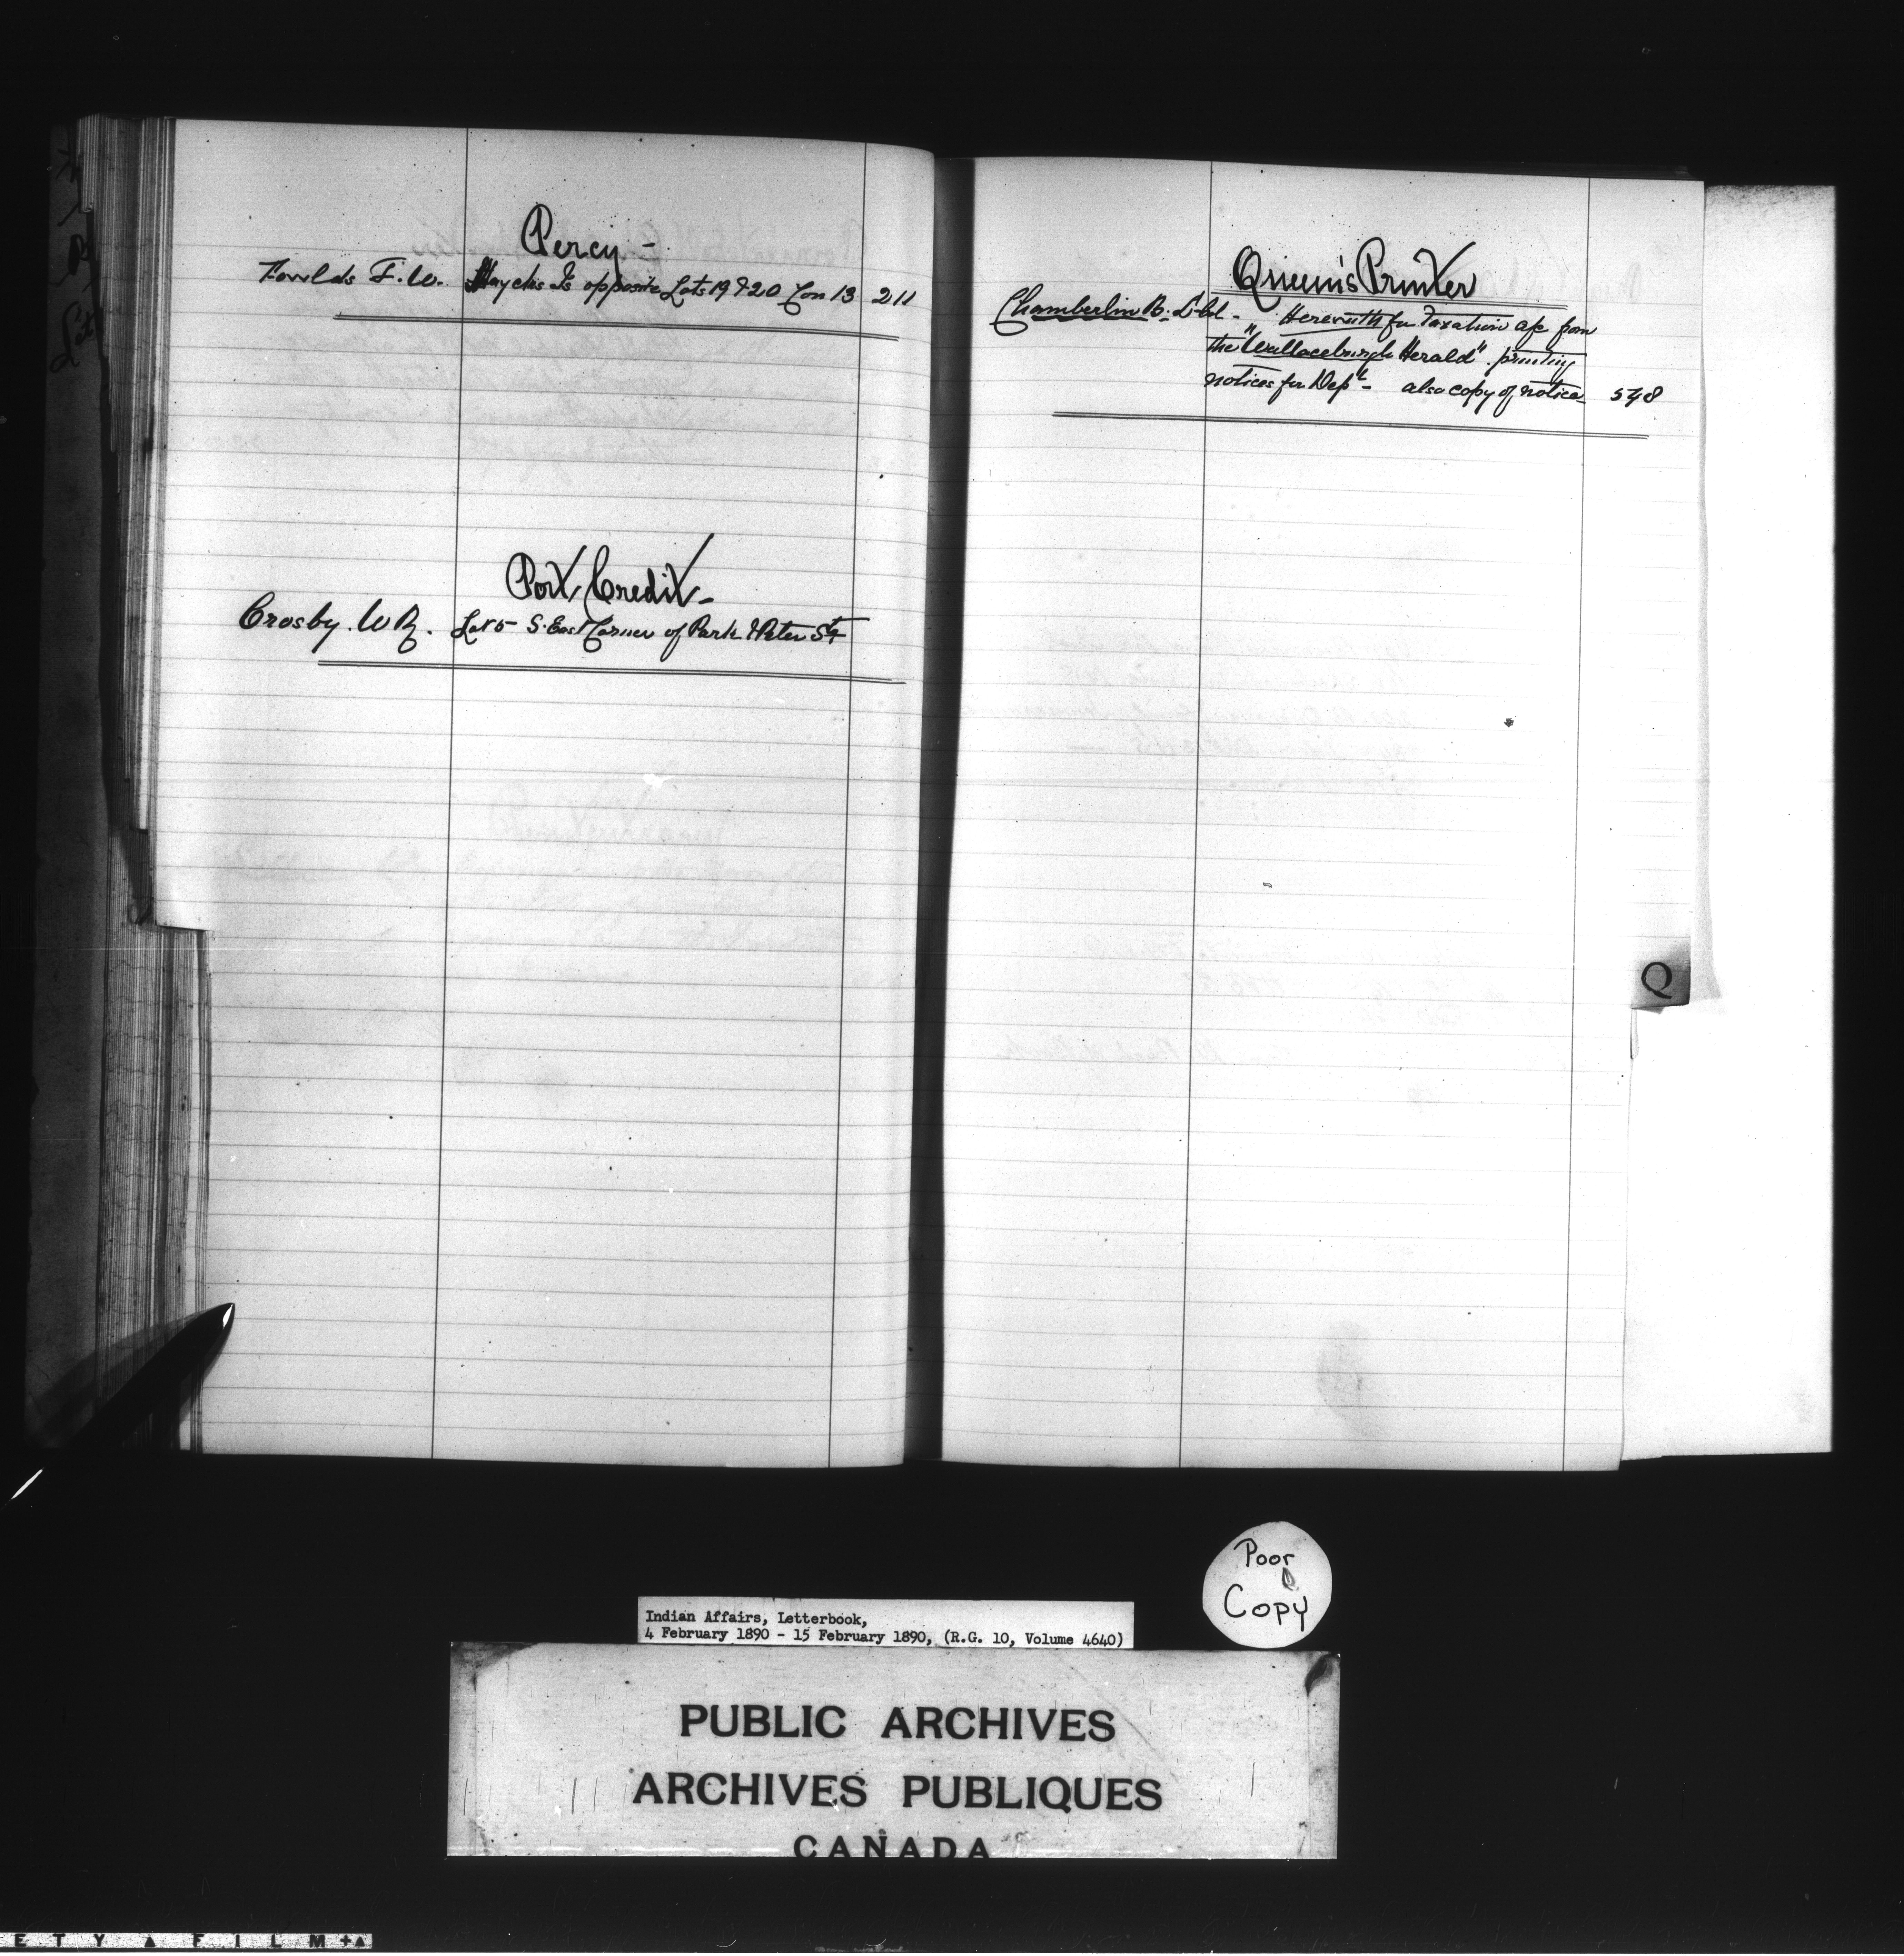 Percy -
Fowlds F. W. Haycliss Is opposite Lots 19 & 20 Con 13 211
Port Credit -
Crosby. W R. Lot 5 - S. East Corner of Park & Peter Sts
Queen's Printer
Chamberlin B. Lt Col - Herewith for Taxation a/c from
the "Wallaceburgh Herald" printing
notices for Dept - also copy of notice 548
Q
Poor
Copy
Indian Affairs, Letterbook,
4 February 1890 - 15 February 1890, (R.G. 10, Volume 4640)
PUBLIC ARCHIVES
ARCHIVES PUBLIQUES
CANADA
E T Y ▲ F I L M